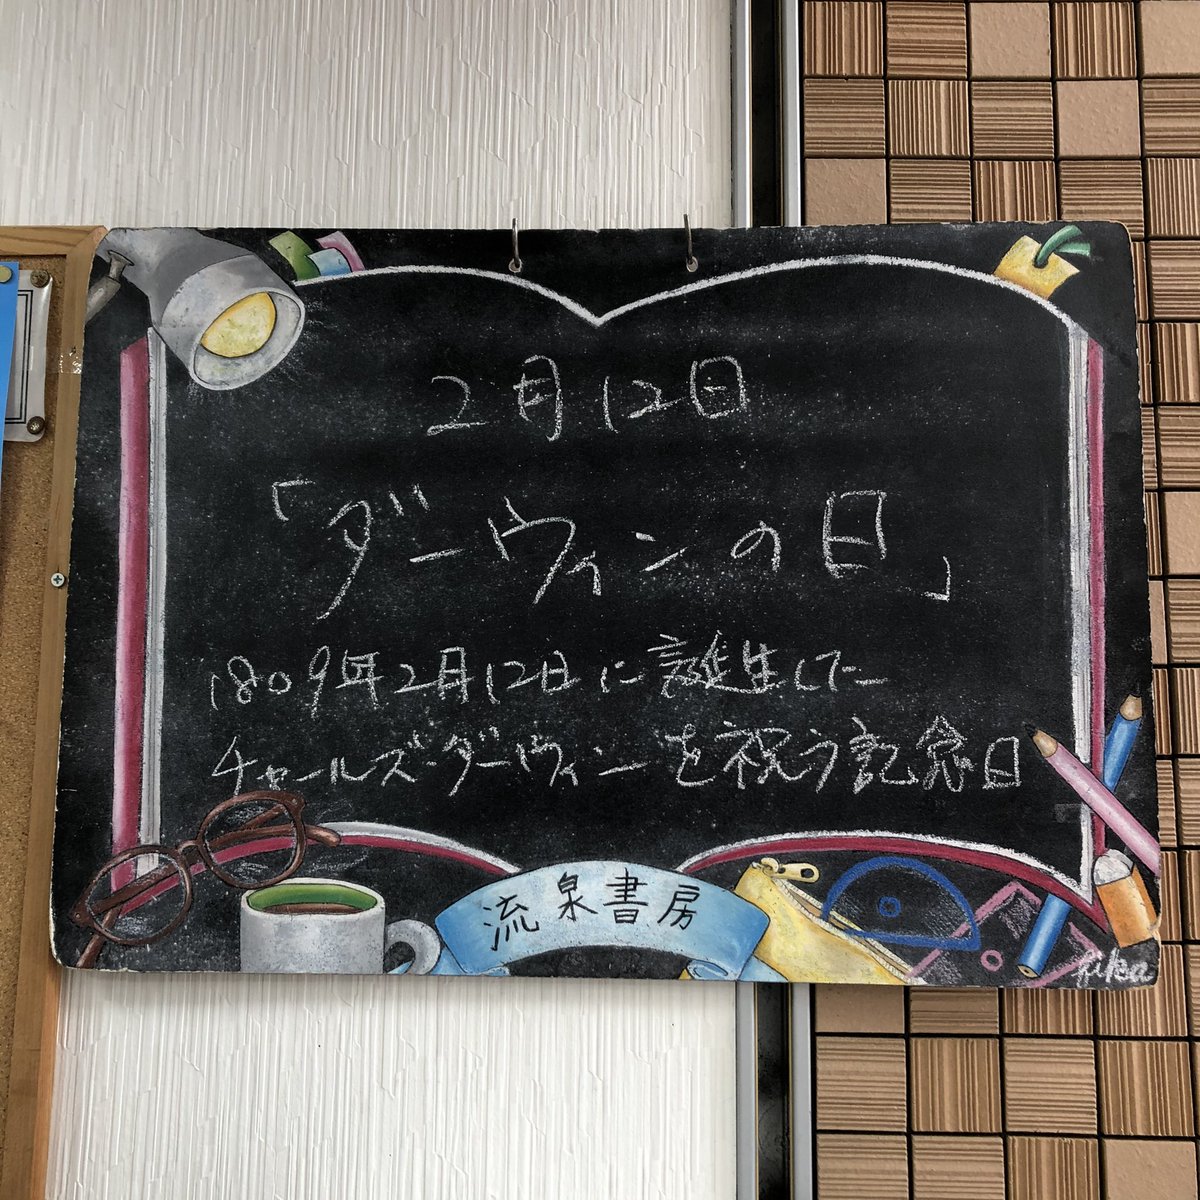 2月12日
「ダーウィンの日」
1809年2月12日に誕生した
チャールズ・ダーウィンを祝う記念日
流泉書房
fika